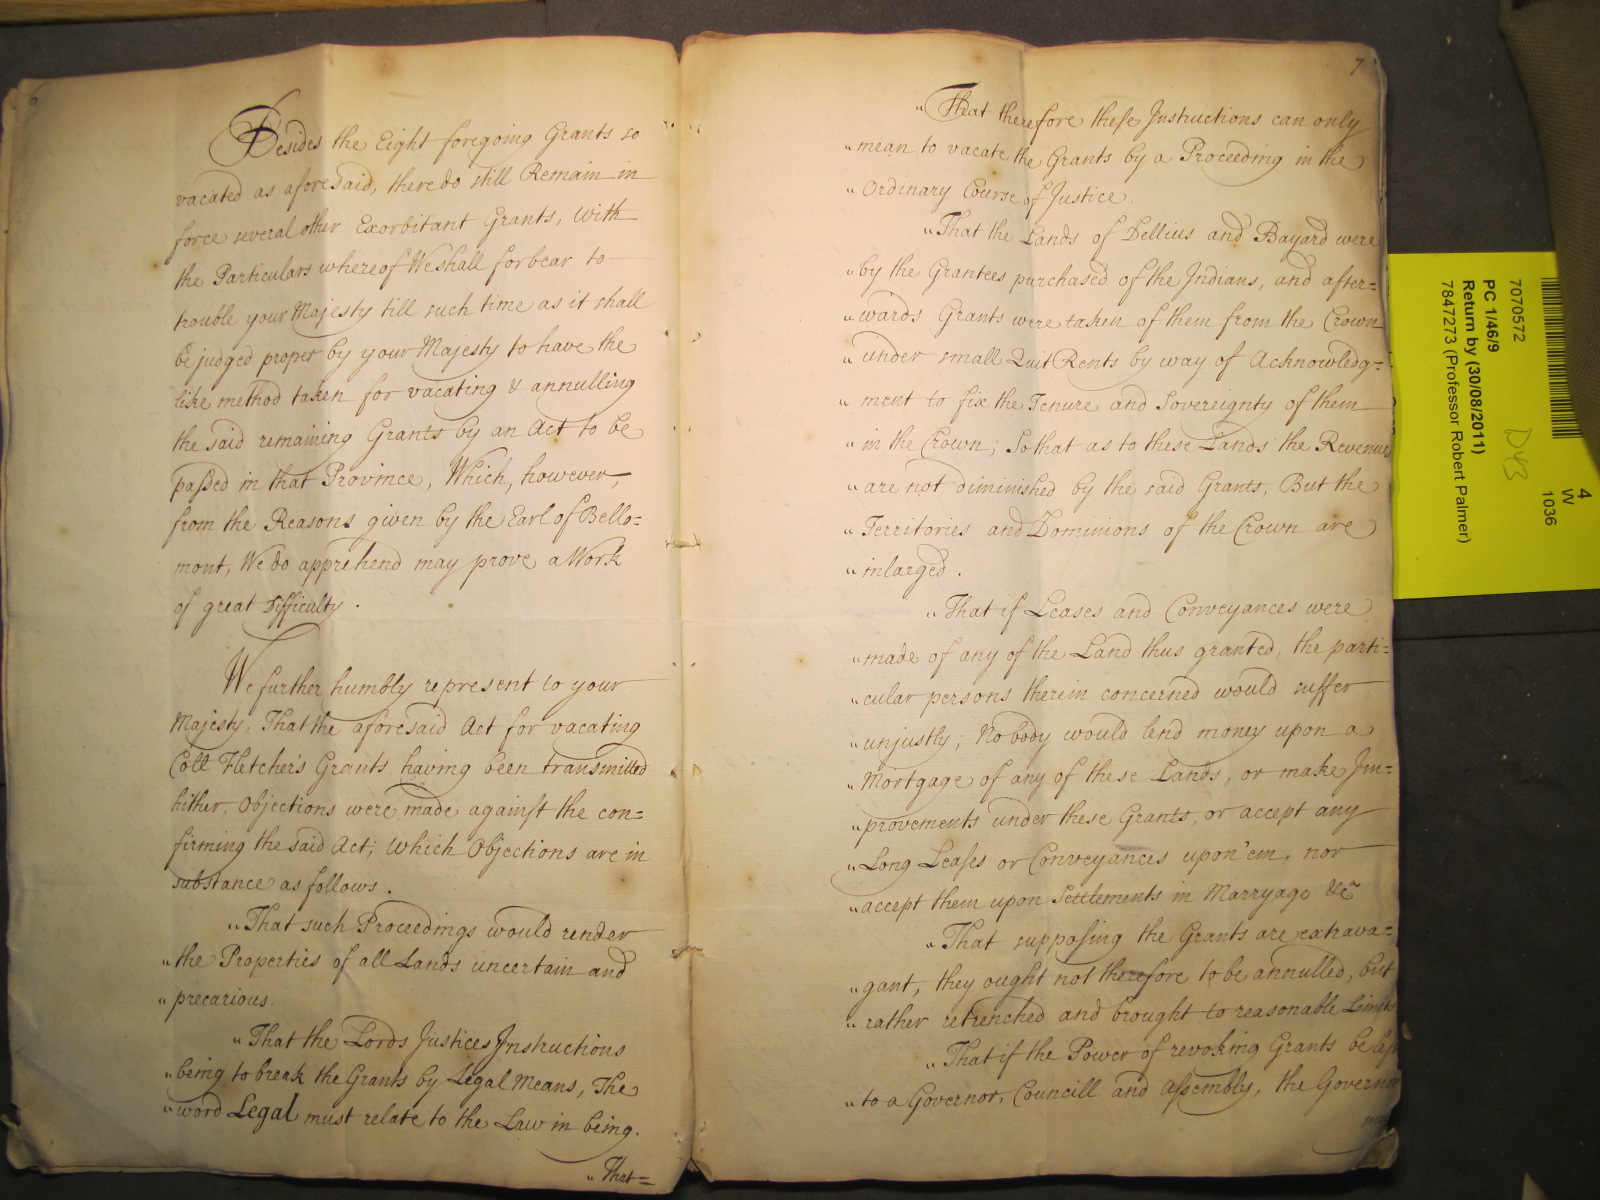 6
Besides the Eight foregoing Grants so
vacated as aforesaid, there do still Remain in
force several other Exorbitant Grants, with
the Particulars whereof We shall forbear to
trouble your Majesty till such time as it shall
be judged proper by your Majesty to have the
like method taken for vacating & annulling
the said remaining Grants by an Act to be
passed in that Province, Which, however,
from the Reasons given by the Earl of Bello=
mont, We do apprehend may prove a Work
of great Difficulty.
We further humbly represent to your
Majesty, That the aforesaid Act for vacating
Coll Fletcher's Grants having been transmitted
hither, Objections were made against the con=
firming the said Act; which Objections are in
substance as follows.
"That such Proceedings would render
"the Properties of all Lands uncertain and
"precarious.
"That the Lords Justices Instructions
"being to break the Grants by Legal Means, The
"word Legal must relate to the Law in being.
"That=
7
"That therefore these Instructions can only
"mean to vacate the Grants by a Proceeding in the
"Ordinary Course of Justice.
"That the Lands of Dellius and Bayard were
"by the Grantees purchased of the Indians, and after=
"wards Grants were taken of them from the Crown
"under small Quit Rents by way of Acknowledg=
"ment to fix the Tenure and Sovereignty of them
"in the Crown; So that as to these Lands the Revenues
"are not diminished by the said Grants, But the
"Territories and Dominions of the Crown are
"inlarged.
"That if Leases and Conveyances were
"made of any of the Land thus granted, the parti=
"cular persons therein concerned would suffer
"unjustly; No body would lend money upon a
"Mortgage of any of these Lands, or make Im=
"provements under these Grants, or accept any
"Long Leases or Conveyances upon 'em, nor
"accept them upon Settlements in Marryage &c
"That supposing the Grants are extrava=
"gant, they ought not therefore to be annulled, but
"rather retrenched and brought to reasonable Limits
"That if the Power of revoking Grants be left
"to a Governor, Councill and Assembly, the Governor
7070572
PC 1/46/9
Return by (30/08/2011)
7847273 (Professor Robert Palmer)
D43
4
W
1036